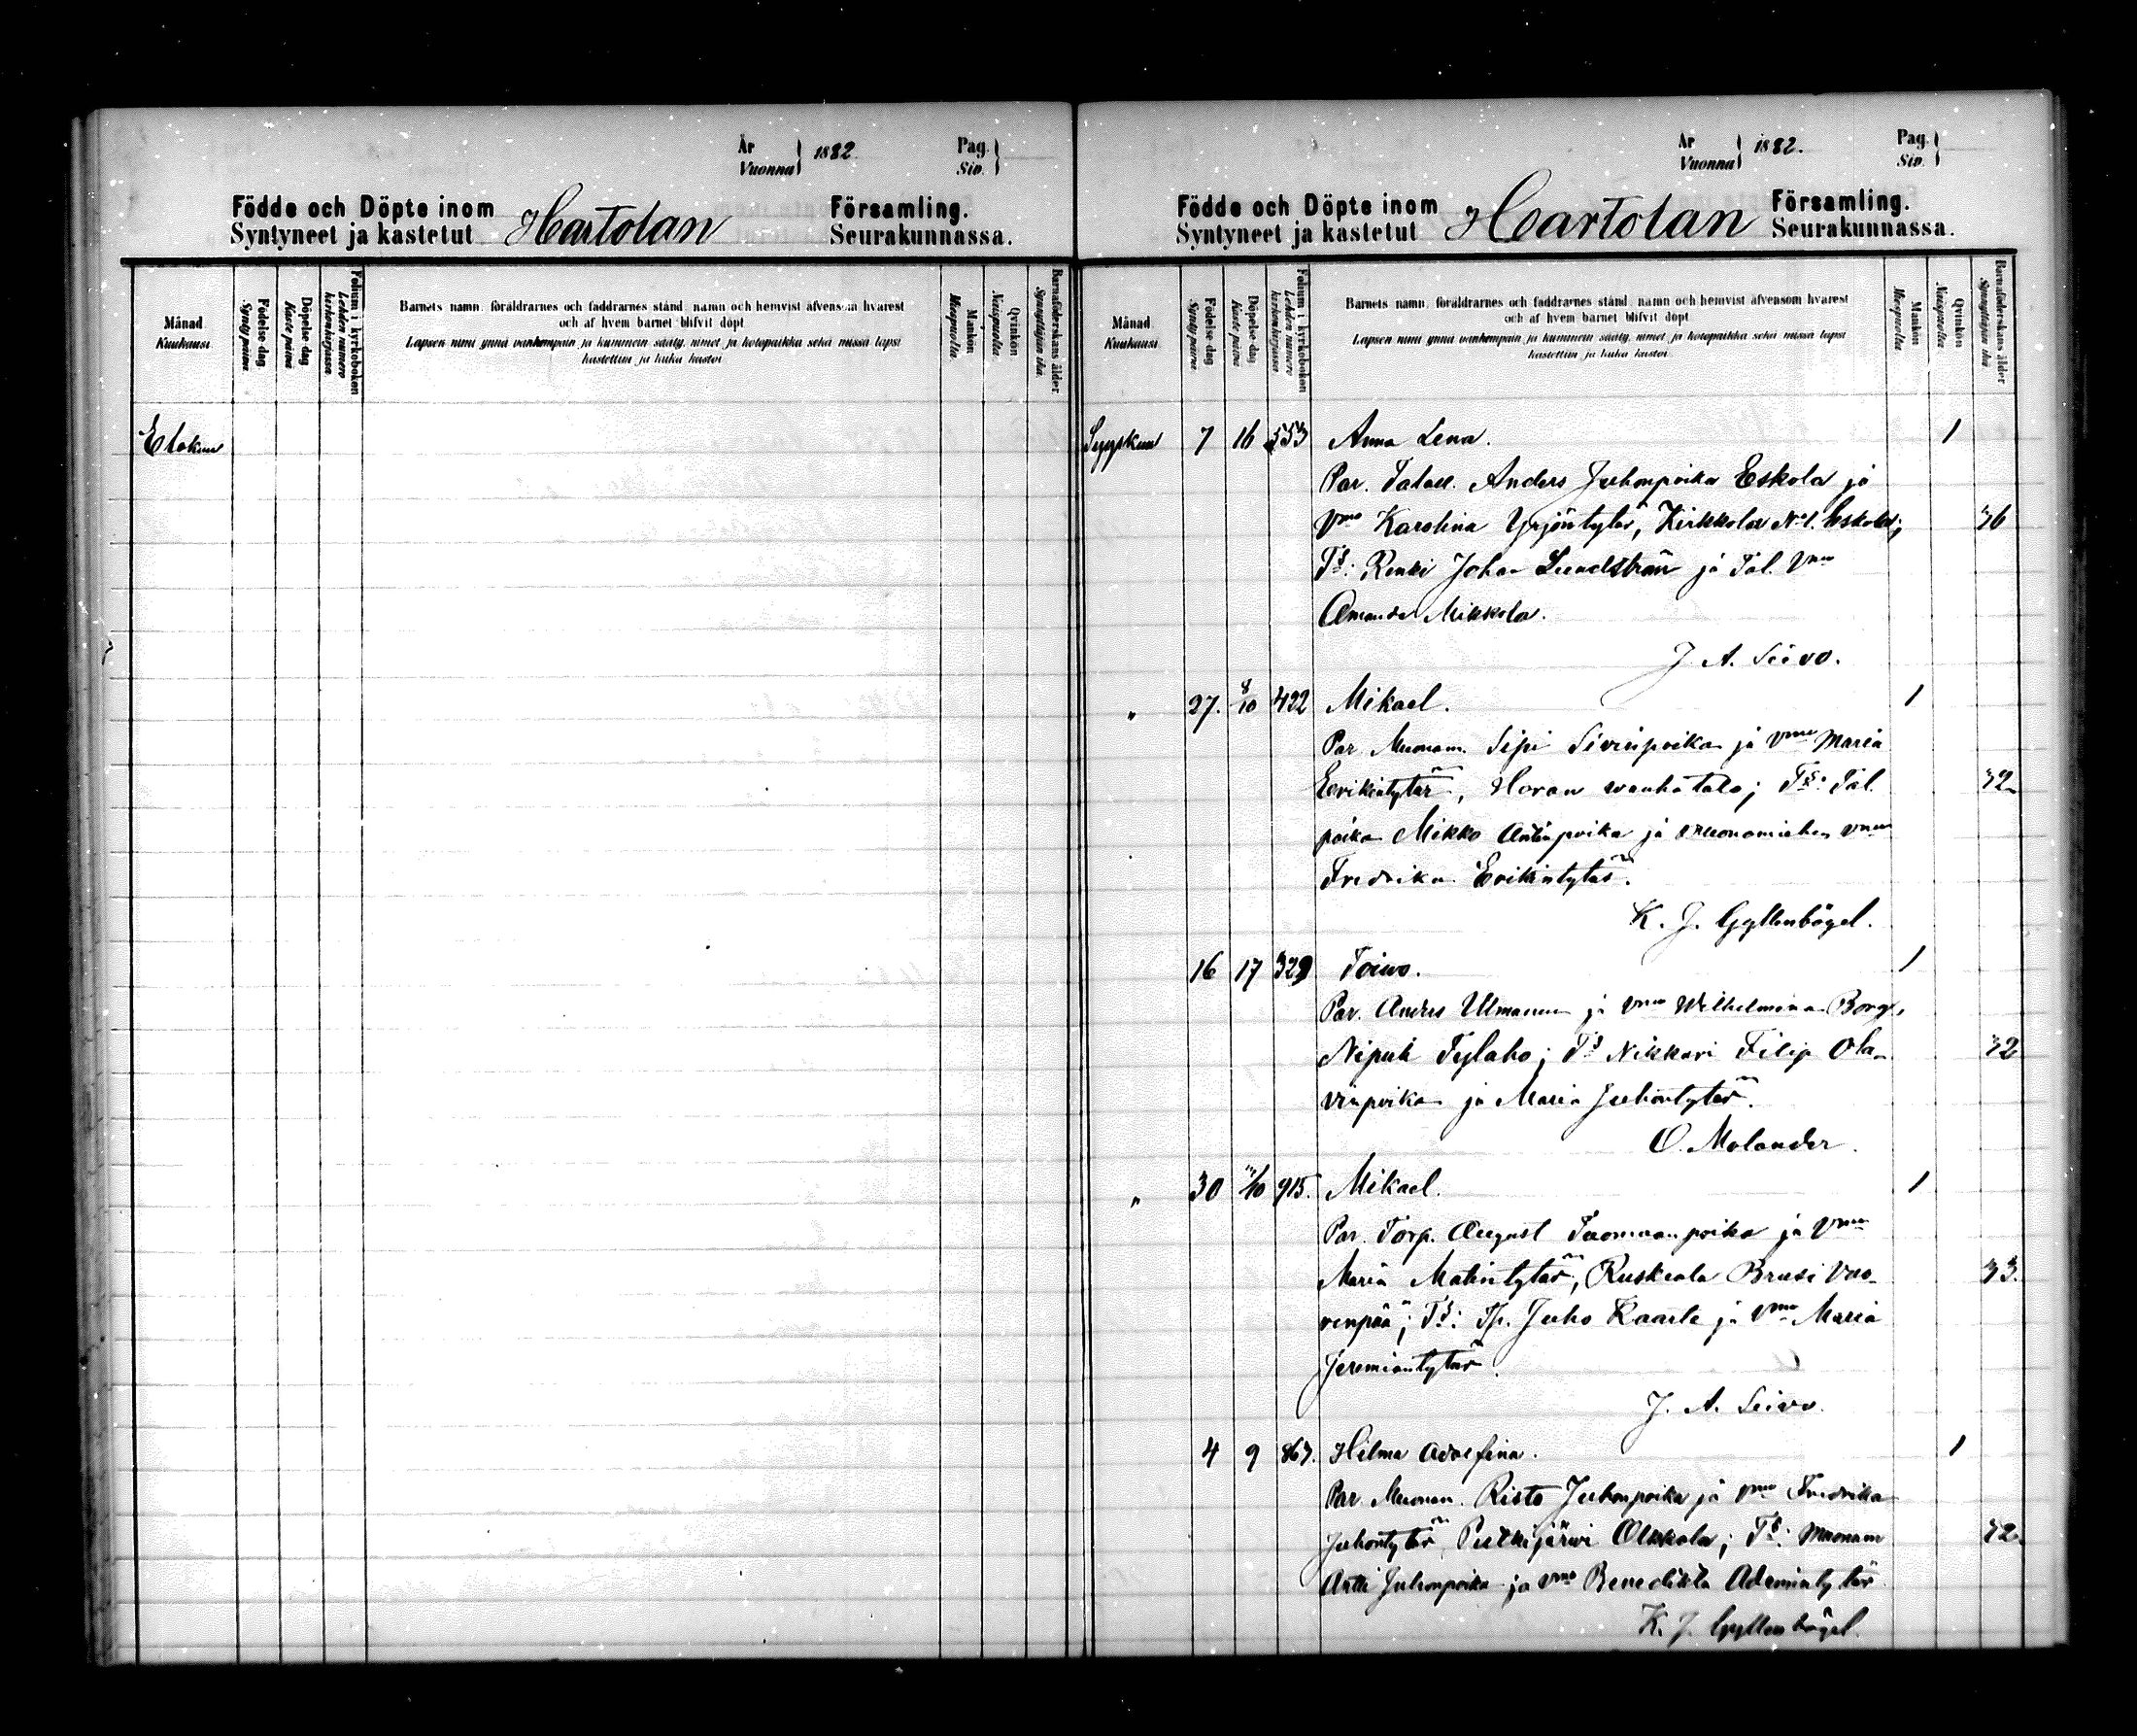 År 1882. Pag.
Vuonna Siv.
Födde och Döpte inom Hartolan Församling.
Syntyneet ja kastetut Seurakunnassa.
Månad. Kuukausi.
Födelse dag Synty päivä
Döpelse dag Kaste päivä
Folium i kyrkoboken Lehden numero kirkonkirjassa
Barnets namn, föräldrarnes och faddrarnes stånd, namn och hemvist äfvensom hvarest
och af hvem barnet blifvit döpt
Lapsen nimi ynnä vanhempain ja kummein sääty, nimet ja kotopaikka sekä missä lapsi
kastettiin ja kuka kastoi
Mankön Miespuolta
Qvinkön Naispuolta
Barnaföderskans ålder Synnyttäjän ikä
Elokuu
År 1882. Pag.
Vuonna Siv.
Födde och Döpte inom Hartolan Församling.
Syntyneet ja kastetut Seurakunnassa.
Månad. Kuukausi.
Födelse dag Synty päivä
Döpelse dag Kaste päivä
Folium i kyrkoboken Lehden numero kirkonkirjassa
Barnets namn, föräldrarnes och faddrarnes stånd, namn och hemvist äfvensom hvarest
och af hvem barnet blifvit döpt
Lapsen nimi ynnä vanhempain ja kummein sääty, nimet ja kotopaikka sekä missä lapsi
kastettiin ja kuka kastoi
Mankön Miespuolta
Qvinkön Naispuolta
Barnaföderskans ålder Synnyttäjän ikä
Syyskuu 7 16 553 Anna Lena. 1
Par. Anders Juhonpoika Eskola ja
Vmo Karolina Yrjöntytär, Kirkkola No 1. Eskola; 36
Ts: Renki Johan Lundström ja Tal. Vmo
Amanda Mikkola.
J. A. Seivo.
" 27. 8/10 422 Mikael. 1
Par. Muonam. Sipi Sivinpoika ja Vmo Maria
Eerikintytär, Horan wanhatalo; Ts: Tal.
32
poika Mikko Antinpoika ja muonamiehen vmo
Fredrika Erikintytär.
K. J. Gyllenbögel.
16 17 329 Toiwo. 1
Par. Anders Ulmanen ja Vmo Wilhelmina Borg,
Nipuli Tylaho; Ts Nikkari Filip Ola- 32
vinpoika ja Maria Juhontytär.
O. Molander.
" 30 /10 915. Mikael. 1
Par. Torp. August Tuomaanpoika ja Vmo
Maria Matintytär, Ruskeala Brusi Vuo- 33.
renpää; Ts: Tp. Juho Kaarle ja Vmo Maria
Jeremiantytär.
J. A. Seivo.
4 9 867. Hilma Adolfina. 1
Par. Muonam. Risto Juhonpoika ja Vmo Fredrika
Juhontytär, Putkijärwi Olkkola; Ts: Muonam 32.
Antti Juhonpoika ja vmo Benedikta Adamintytär
K. J. Gyllenbögel.